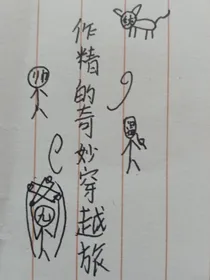 作精的奇妙穿越旅